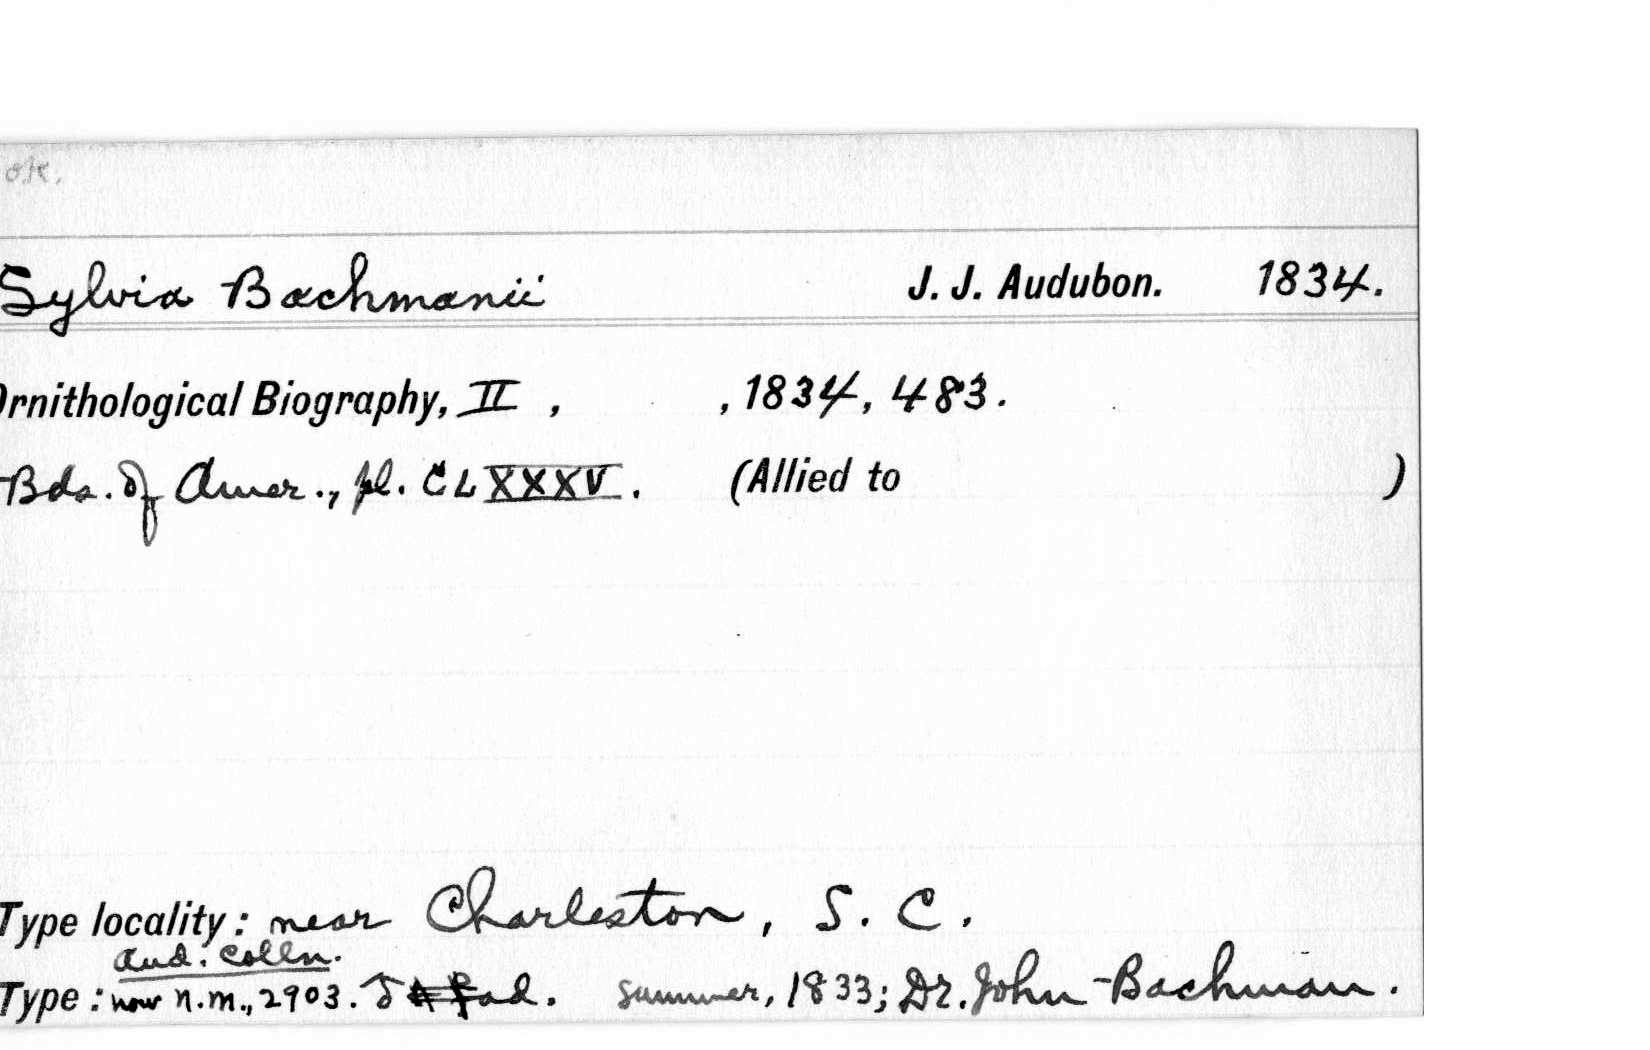 ok.
Sylvia Bachmanii J. J. Audubon. 1834.
Ornithological Biography, II , , 1834, 483.
Bds. of Amer., pl. CLXXXV. (Allied to )
Type locality: near Charleston, S. C.
Aud. Colln.
Type: now N.M., 2903. ♂ ad. summer, 1833; Dr. John Bachman.